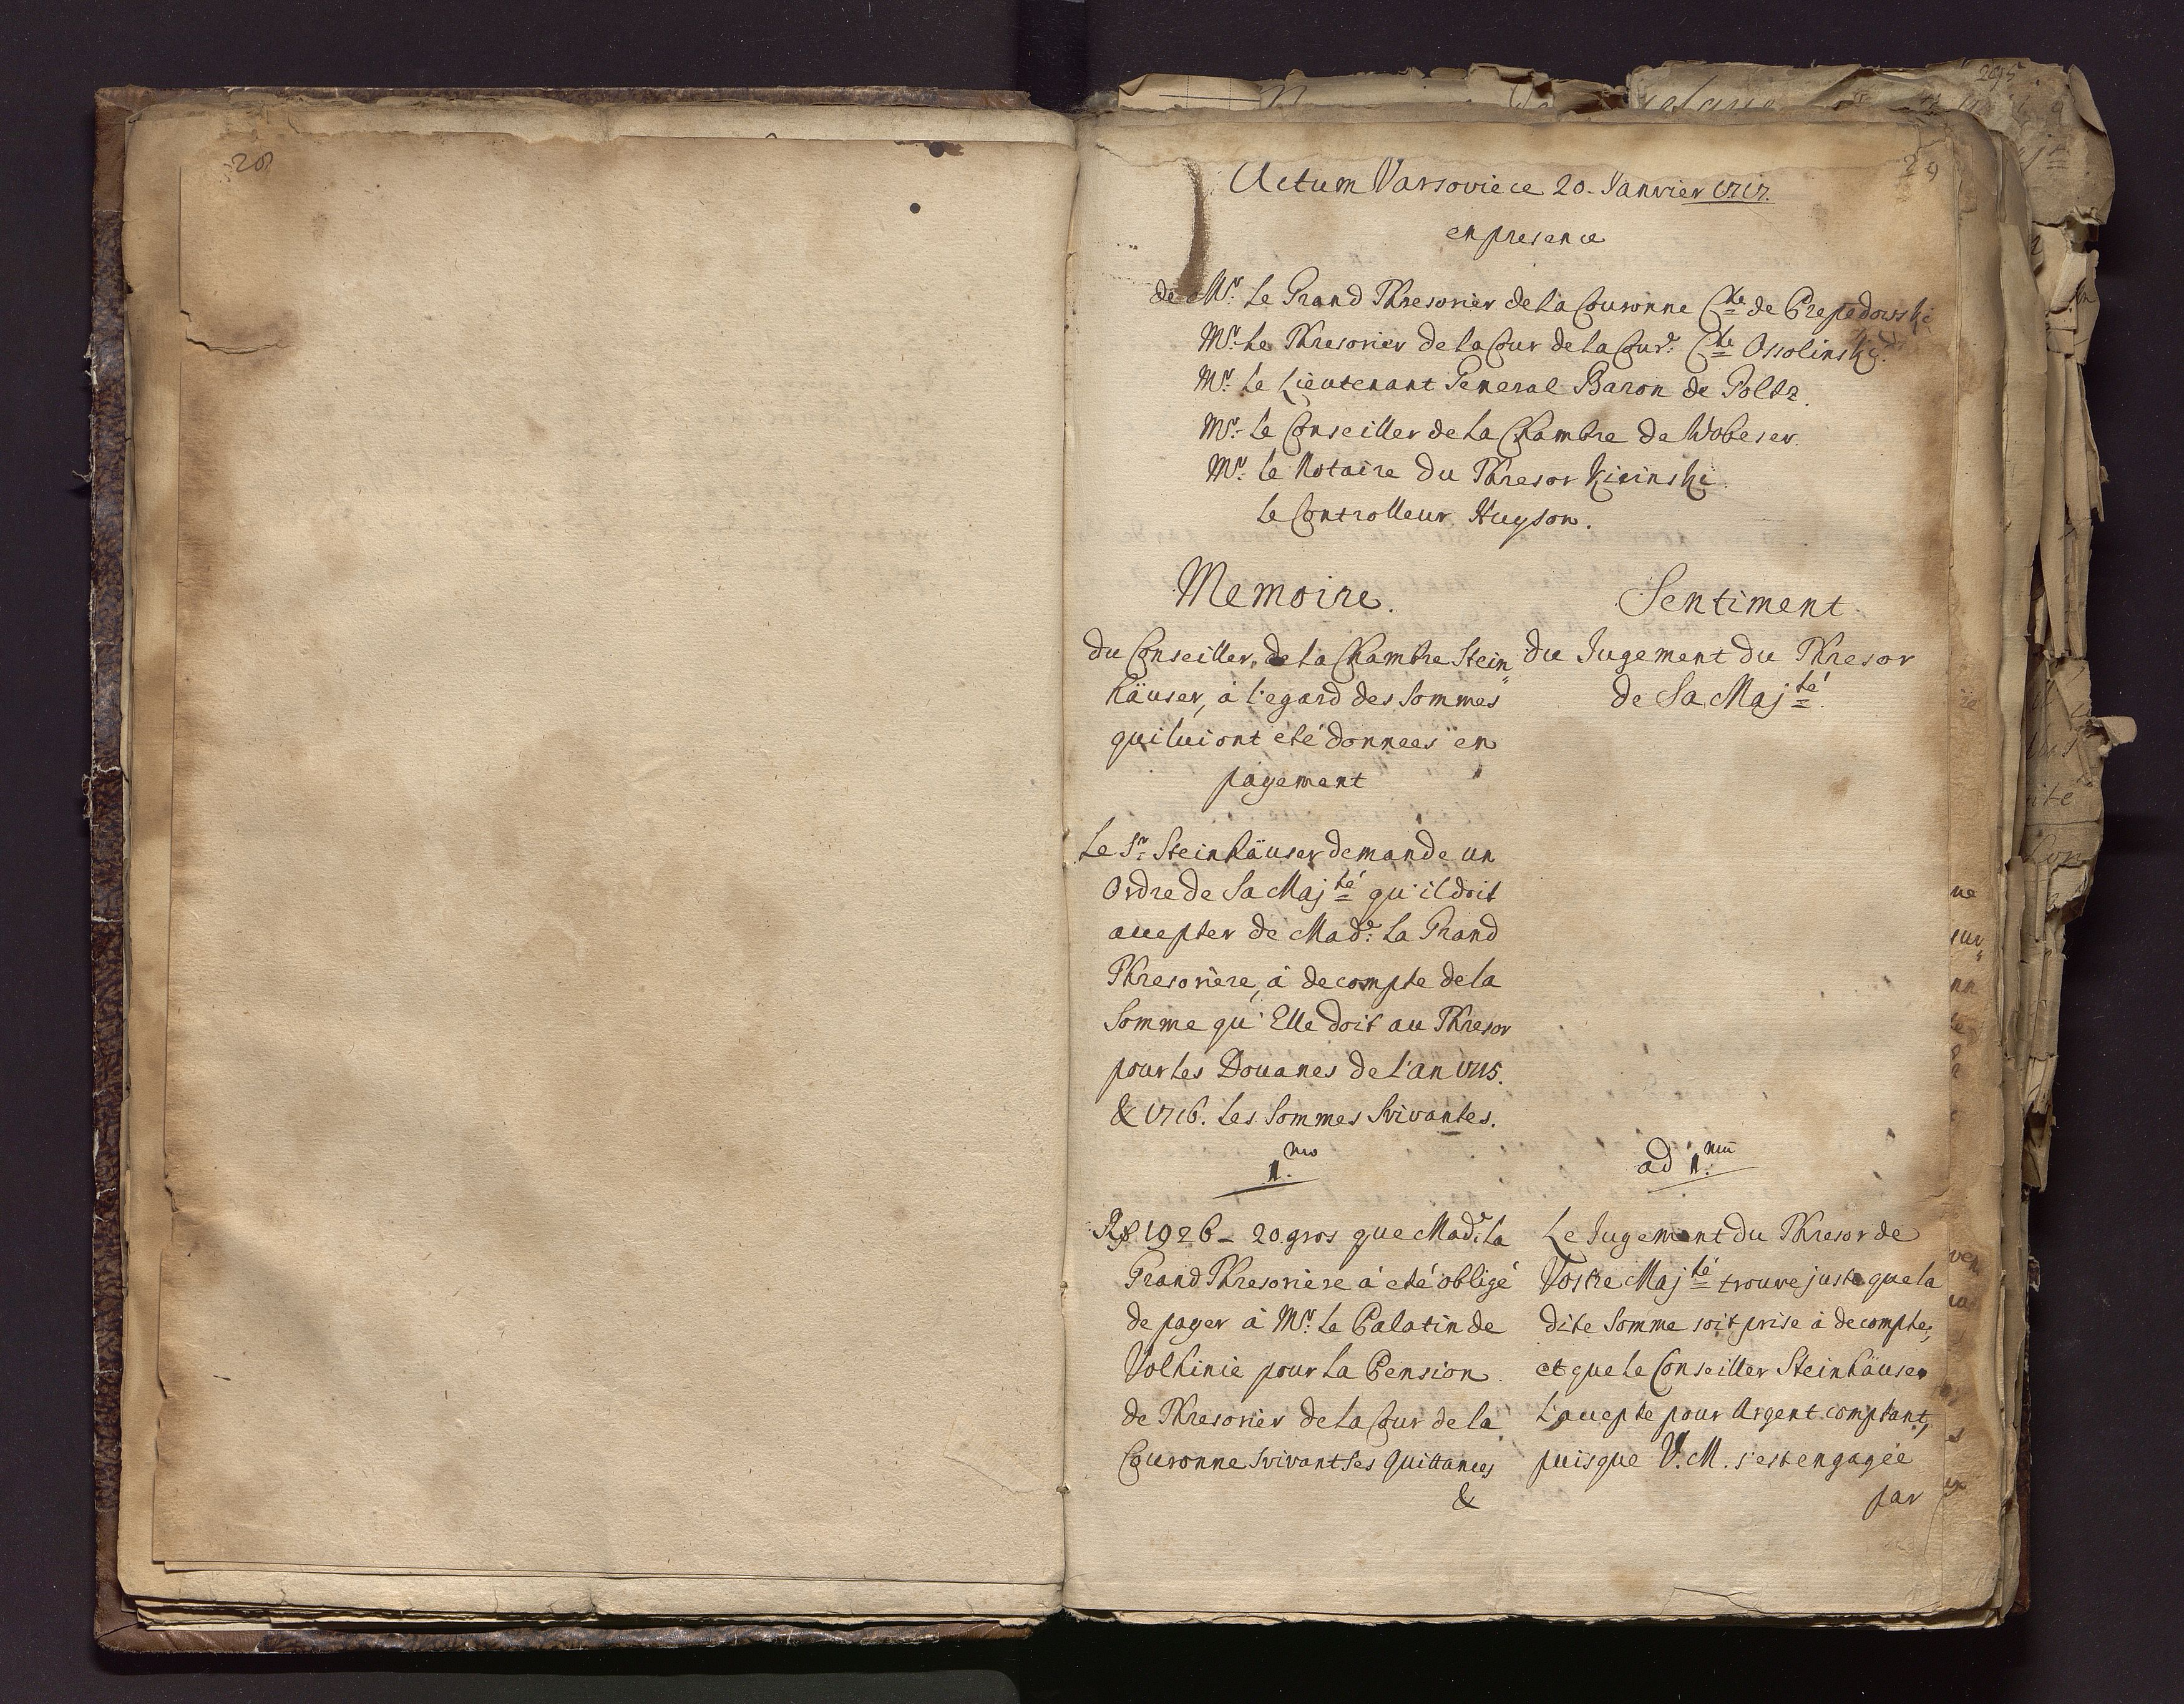 28
29
Actum Varsovie ce 20. Janvier 1717.
en presence
de Mr. le Grand Thresorier de la Couronne Cte de Prependowski
Mr. le Thresorier de la Cour de la Cour. Cte Ossolinsky.
Mr. le Lieutenant General Baron de Goltz.
Mr. le Conseiller de la Chambre de Wobeser.
Mr. le Notaire du Thresor
le Controlleur Huyson.
Memoire.
du Conseiller de la Chambre Stein
häuser, à l'egard des Sommes
qui lui ont eté donnees en
payement
Sentiment
du Jugement du Thresor
de Sa Majté.
Le Sr. Steinhäuser demande un
Ordre de Sa Majté qu'il doit
accepter de Made. la Grand
Thresoriere, à decompte de la
Somme qu'Elle doit au Thresor
pour les Douanes de l'an 1715.
& 1716. les Sommes Suivantes.
1.mo
Rf 1926 - 20 gros que Made. la
Grand Thresoriere à eté obligé
de payer à Mr. le Palatin de
Volhinie pour la Pension
de Thresorier de la Cour de la
Couronne Suivant ses Quittances
&
ad 1.mũ
Le Jugement du Thresor de
Vostre Majté trouve juste que la
dite Somme soit prise à decompte,
et que le Conseiller Steinhäuser
l'accepte pour Argent comptant,
puisque V. M. s'est engagée
par